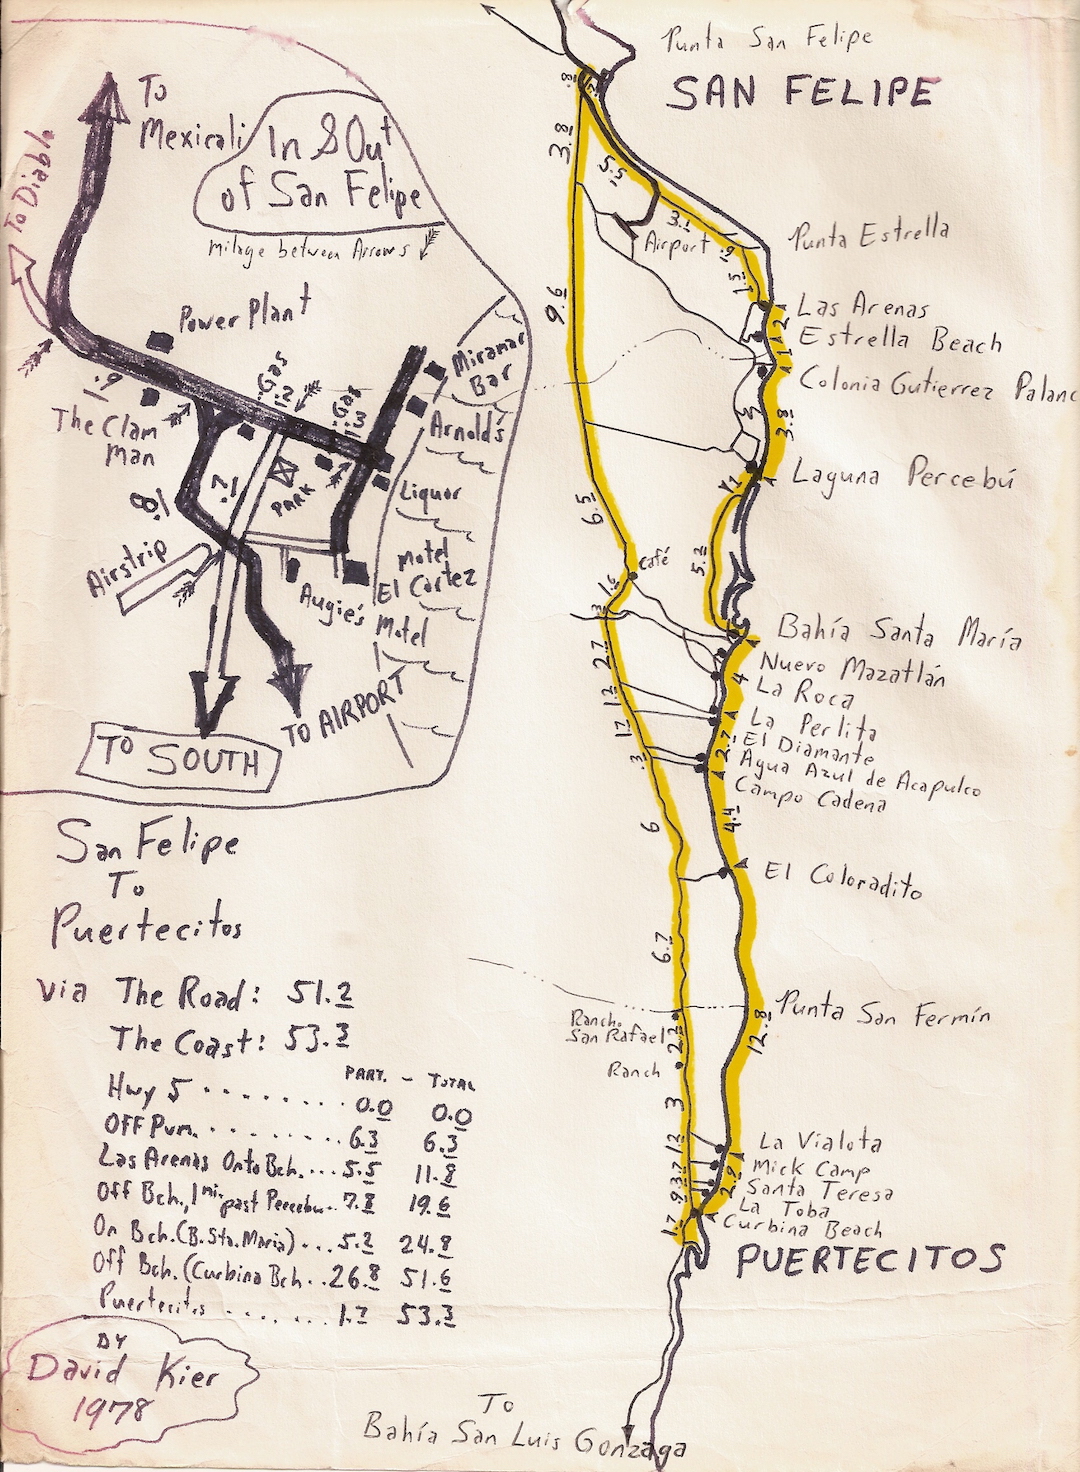 To
Mexicali
To Diablo
In & Out
of San Felipe
Milage between Arrows
Power Plant
.9
The Clam
Man
Gas
.2
Gas
.3
Miramar
Bar
Arnold's
Liquor
PARK
Airstrip
Motel
El Cortez
Augie's
Motel
TO AIRPORT
TO SOUTH
San Felipe
To
Puertecitos
via The Road: 51.2
The Coast: 53.3
PART. - TOTAL
Hwy 5 ........ 0.0 0.0
OFF Pvm. ........ 6.3 6.3
Las Arenas Onto Bch. ... 5.5 11.8
Off Bch., 1 mi. past Percebu.. 7.8 19.6
On Bch. (B. Sta. Maria) ... 5.2 24.8
Off Bch. (Curbina Bch .. 26.8 51.6
Puertecitos ....... 1.7 53.3
BY
David Kier
1978
Punta San Felipe
SAN FELIPE
.8
3.8
5.5
3.1
Airport
Punta Estrella
9.6
Las Arenas
2
Estrella Beach
1
Colonia Gutierrez Palanc
3.8
Laguna Percebú
6.5
Café
5.2
1.6
.3
Bahía Santa María
2.7
Nuevo Mazatlán
4
La Roca
La Perlita
El Diamante
2.7
Agua Azul de Acapulco
.3
Campo Cadena
6
4.4
El Coloradito
6.7
Punta San Fermín
12.8
Rancho
San Rafael
2.2
Ranch
3
La Vialota
Mick Camp
Santa Teresa
2.9
La Toba
Curbina Beach
1.7
PUERTECITOS
To
Bahía San Luis Gonzaga